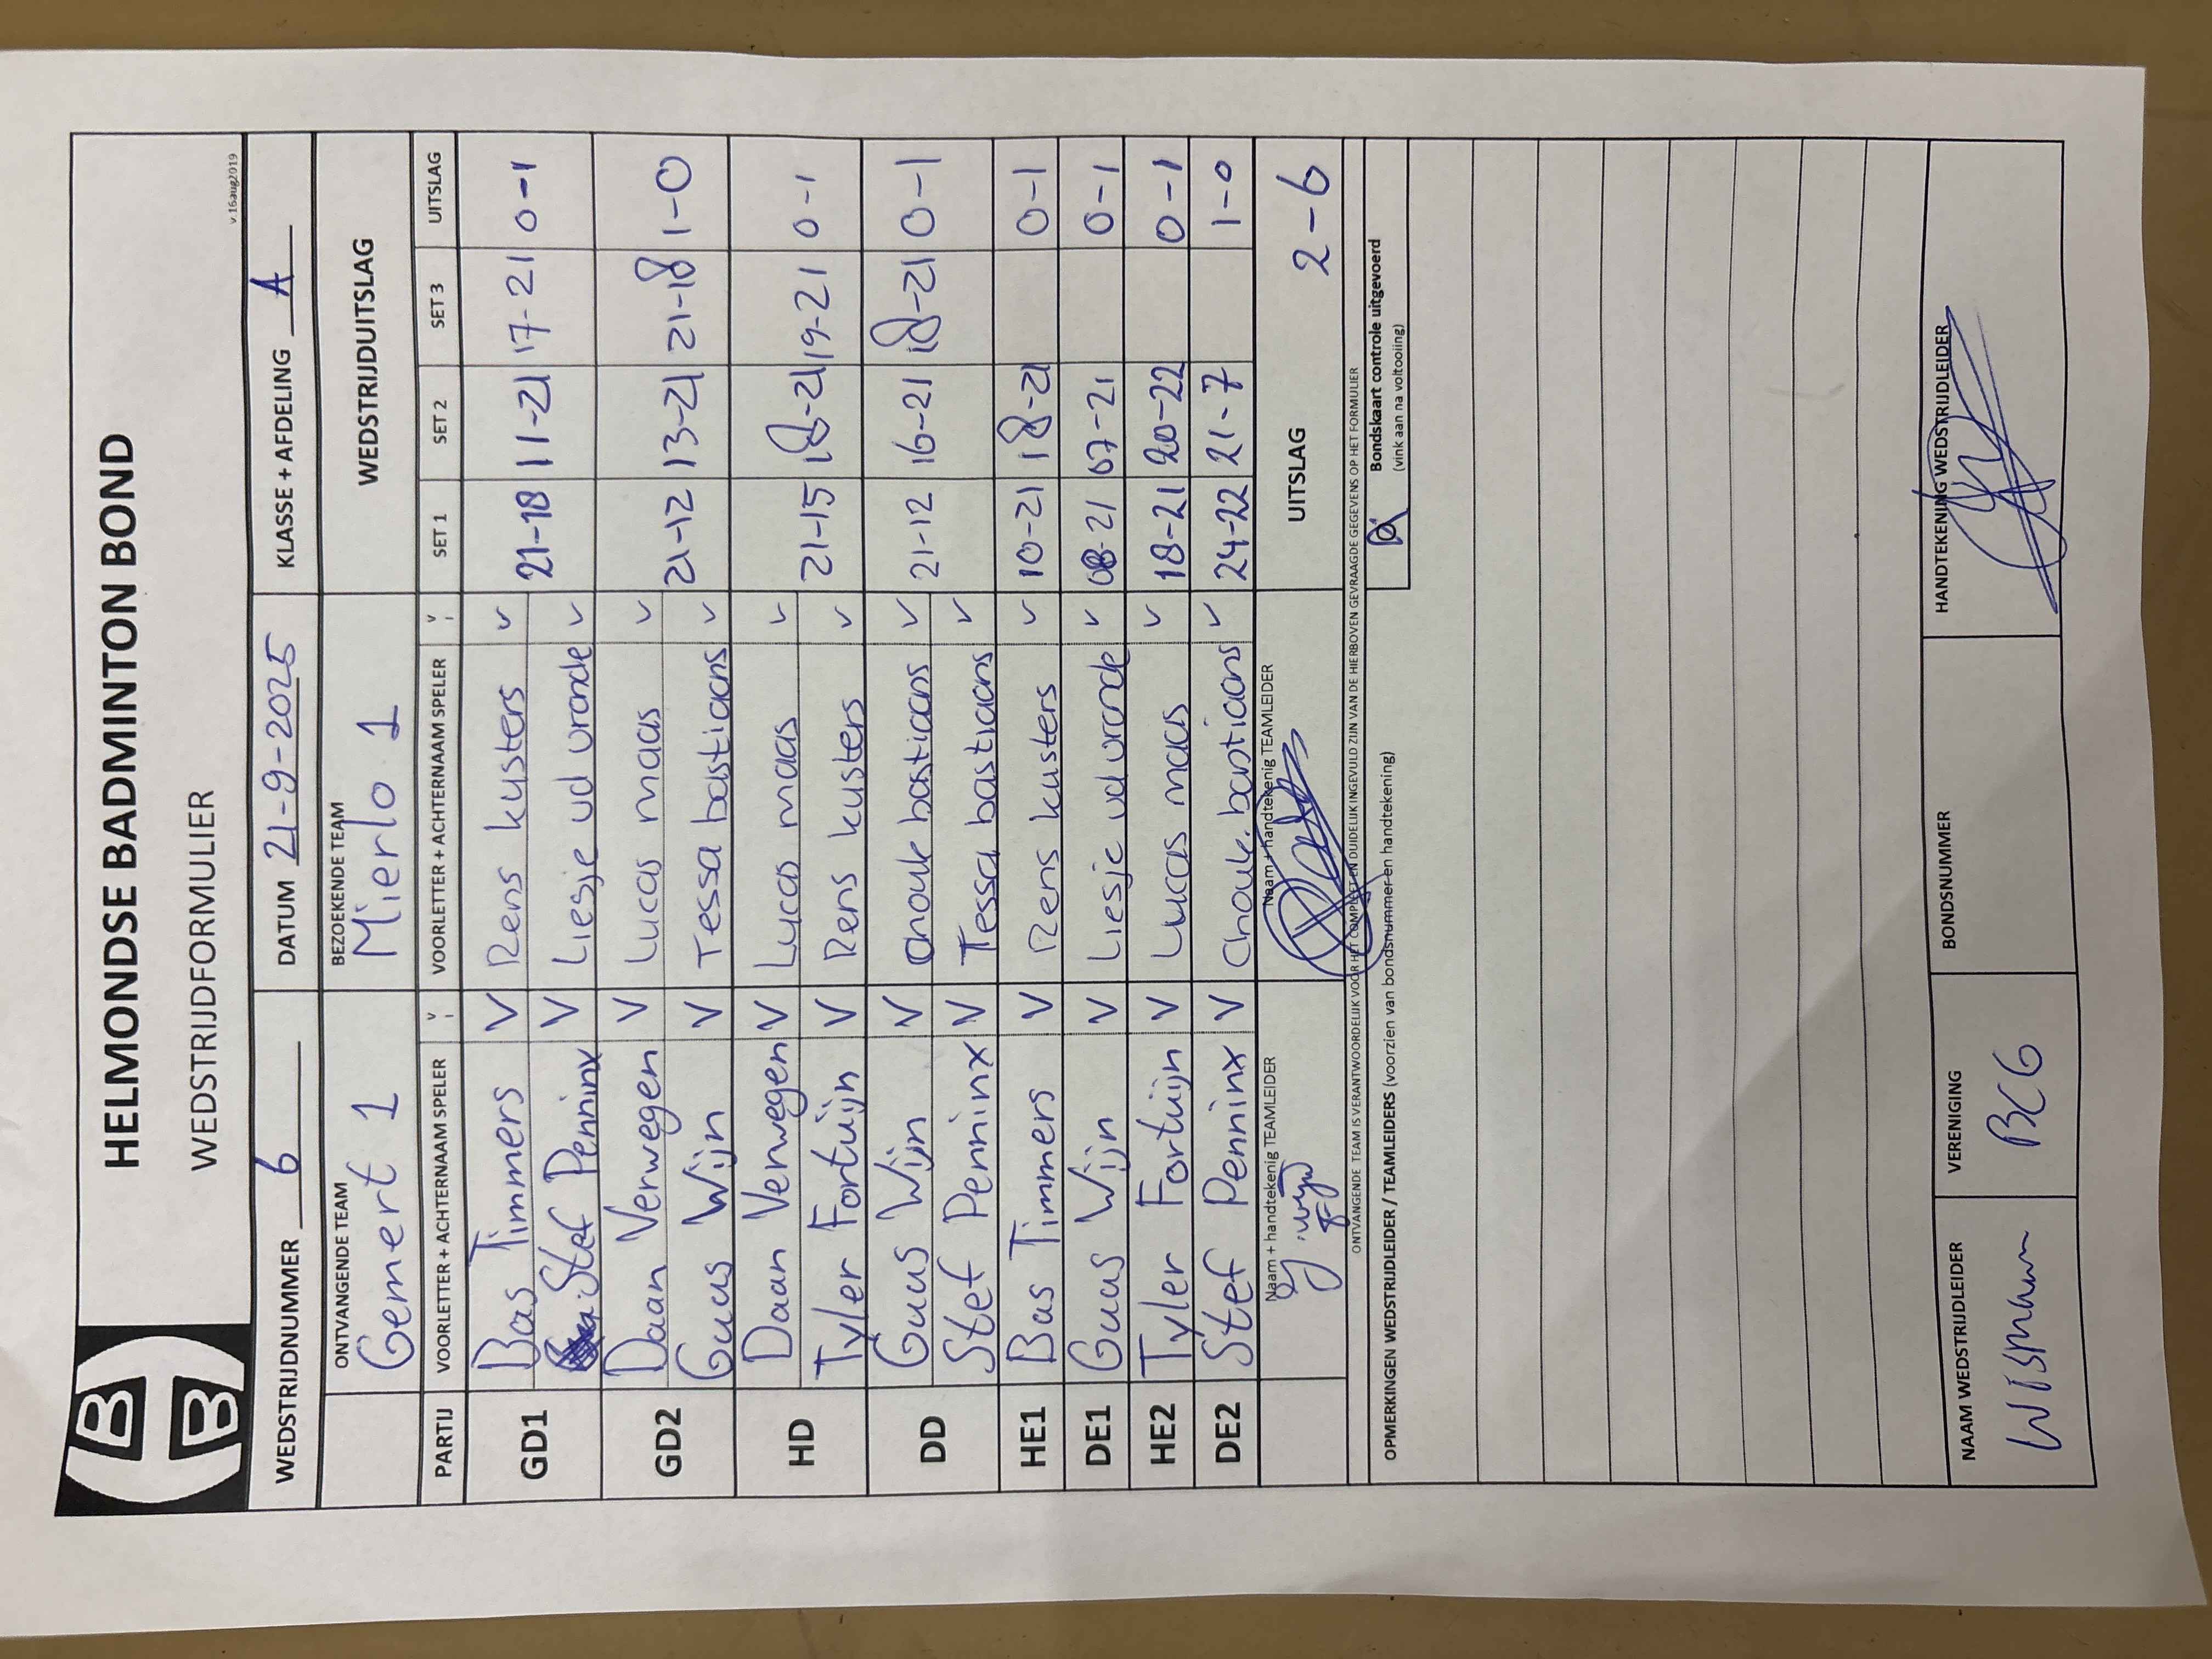 HELMONDSE BADMINTON BOND
WEDSTRIJDFORMULIER
v.16aug2019
WEDSTRIJDNUMMER 6 DATUM 21-9-2025 KLASSE + AFDELING A
ONTVANGENDE TEAM BEZOEKENDE TEAM WEDSTRIJDUITSLAG
Gemert 1 Mierlo 1
PARTIJ VOORLETTER + ACHTERNAAM SPELER V VOORLETTER + ACHTERNAAM SPELER V SET 1 SET 2 SET 3 UITSLAG
GD1 Bas Timmers V Rens kusters v 21-18 11-21 17-21 0-1
Stef Penninx V Liesje vd vrande v
GD2 Daan Verwegen V Lucas maas v 21-12 13-21 21-18 1-0
Guus Wijn V Tessa bastiaans v
HD Daan Verwegen V Lucas maas v 21-15 18-21 19-21 0-1
Tyler Fortuijn V Rens kusters v
DD Guus Wijn V Anouk bastiaans v 21-12 16-21 18-21 0-1
Stef Penninx V Tessa bastiaans v
HE1 Bas Timmers V Rens kusters v 10-21 18-21 0-1
DE1 Guus Wijn V Liesje vd vrande v 08-21 07-21 0-1
HE2 Tyler Fortuijn V Lucas maas v 18-21 20-22 0-1
DE2 Stef Penninx V Anouk bastiaans v 24-22 21-7 1-0
Naam + handtekenig TEAMLEIDER Naam + handtekenig TEAMLEIDER UITSLAG 2-6
ONTVANGENDE TEAM IS VERANTWOORDELIJK VOOR HET COMPLEET EN DUIDELIJK INGEVULD ZIJN VAN DE HIERBOVEN GEVRAAGDE GEGEVENS OP HET FORMULIER
OPMERKINGEN WEDSTRIJDLEIDER / TEAMLEIDERS (voorzien van bondsnummer en handtekening)
Bondskaart controle uitgevoerd
(vink aan na voltooiing)
NAAM WEDSTRIJDLEIDER VERENIGING BONDSNUMMER HANDTEKENING WEDSTRIJDLEIDER
Wismans BCG